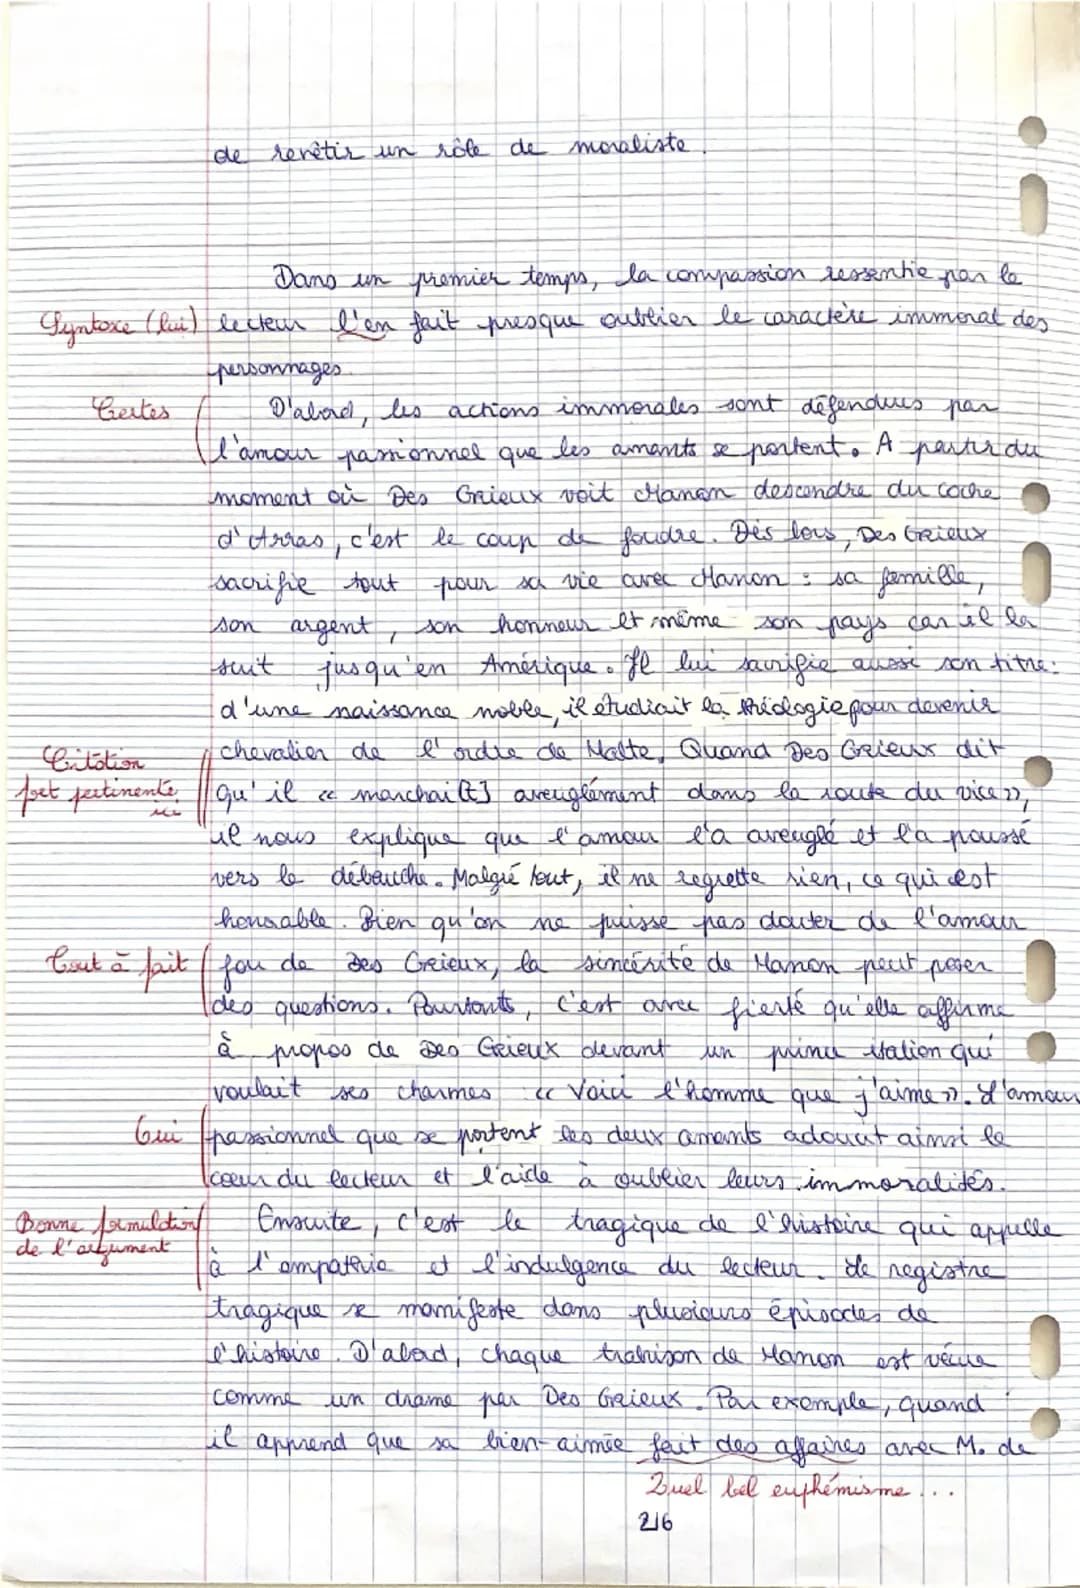 de revêtir un rôle de moraliste.
Dans un premier temps, la compassion ressentie par le
Syntaxe (lui) lecteur l'en fait presque oublier le caractère immoral des
personnages.
Certes D'abord, les actions immorales sont défendues par
l'amour passionnel que les amants se portent. A partir du
moment où Des Grieux voit Manon descendre du coche
d'Arras, c'est le coup de foudre. Dès lors, Des Grieux
sacrifie tout pour sa vie avec Manon : sa famille,
son argent, son honneur et même son pays car il la
suit jusqu'en Amérique. Il lui sacrifie aussi son titre:
d'une naissance noble, il étudiait la théologie pour devenir
Citation chevalier de l'ordre de Malte. Quand Des Grieux dit
fort pertinente ici qu'il « marchai[t] aveuglément dans la route du vice »,
il nous explique que l'amour l'a aveuglé et l'a poussé
vers la débauche. Malgré tout, il ne regrette rien, ce qui est
honorable. Bien qu'on ne puisse pas douter de l'amour
Tout à fait fou de Des Grieux, la sincérité de Manon peut poser
des questions. Pourtants, c'est avec fierté qu'elle affirme
à propos de Des Grieux devant un prince italien qui
voulait ses charmes « Voici l'homme que j'aime ». L'amour
Oui passionnel que se portent les deux amants adoucit ainsi le
coeur du lecteur et l'aide à oublier leurs immoralités.
Bonne formulation Ensuite, c'est le tragique de l'histoire qui appelle
de l'argument à l'empathie et l'indulgence du lecteur. Le registre
tragique se manifeste dans plusieurs épisodes de
l'histoire. D'abord, chaque trahison de Manon est vécue
comme un drame par Des Grieux. Par exemple, quand
il apprend que sa bien-aimée fait des affaires avec M. de
Quel bel euphémisme...
2/6